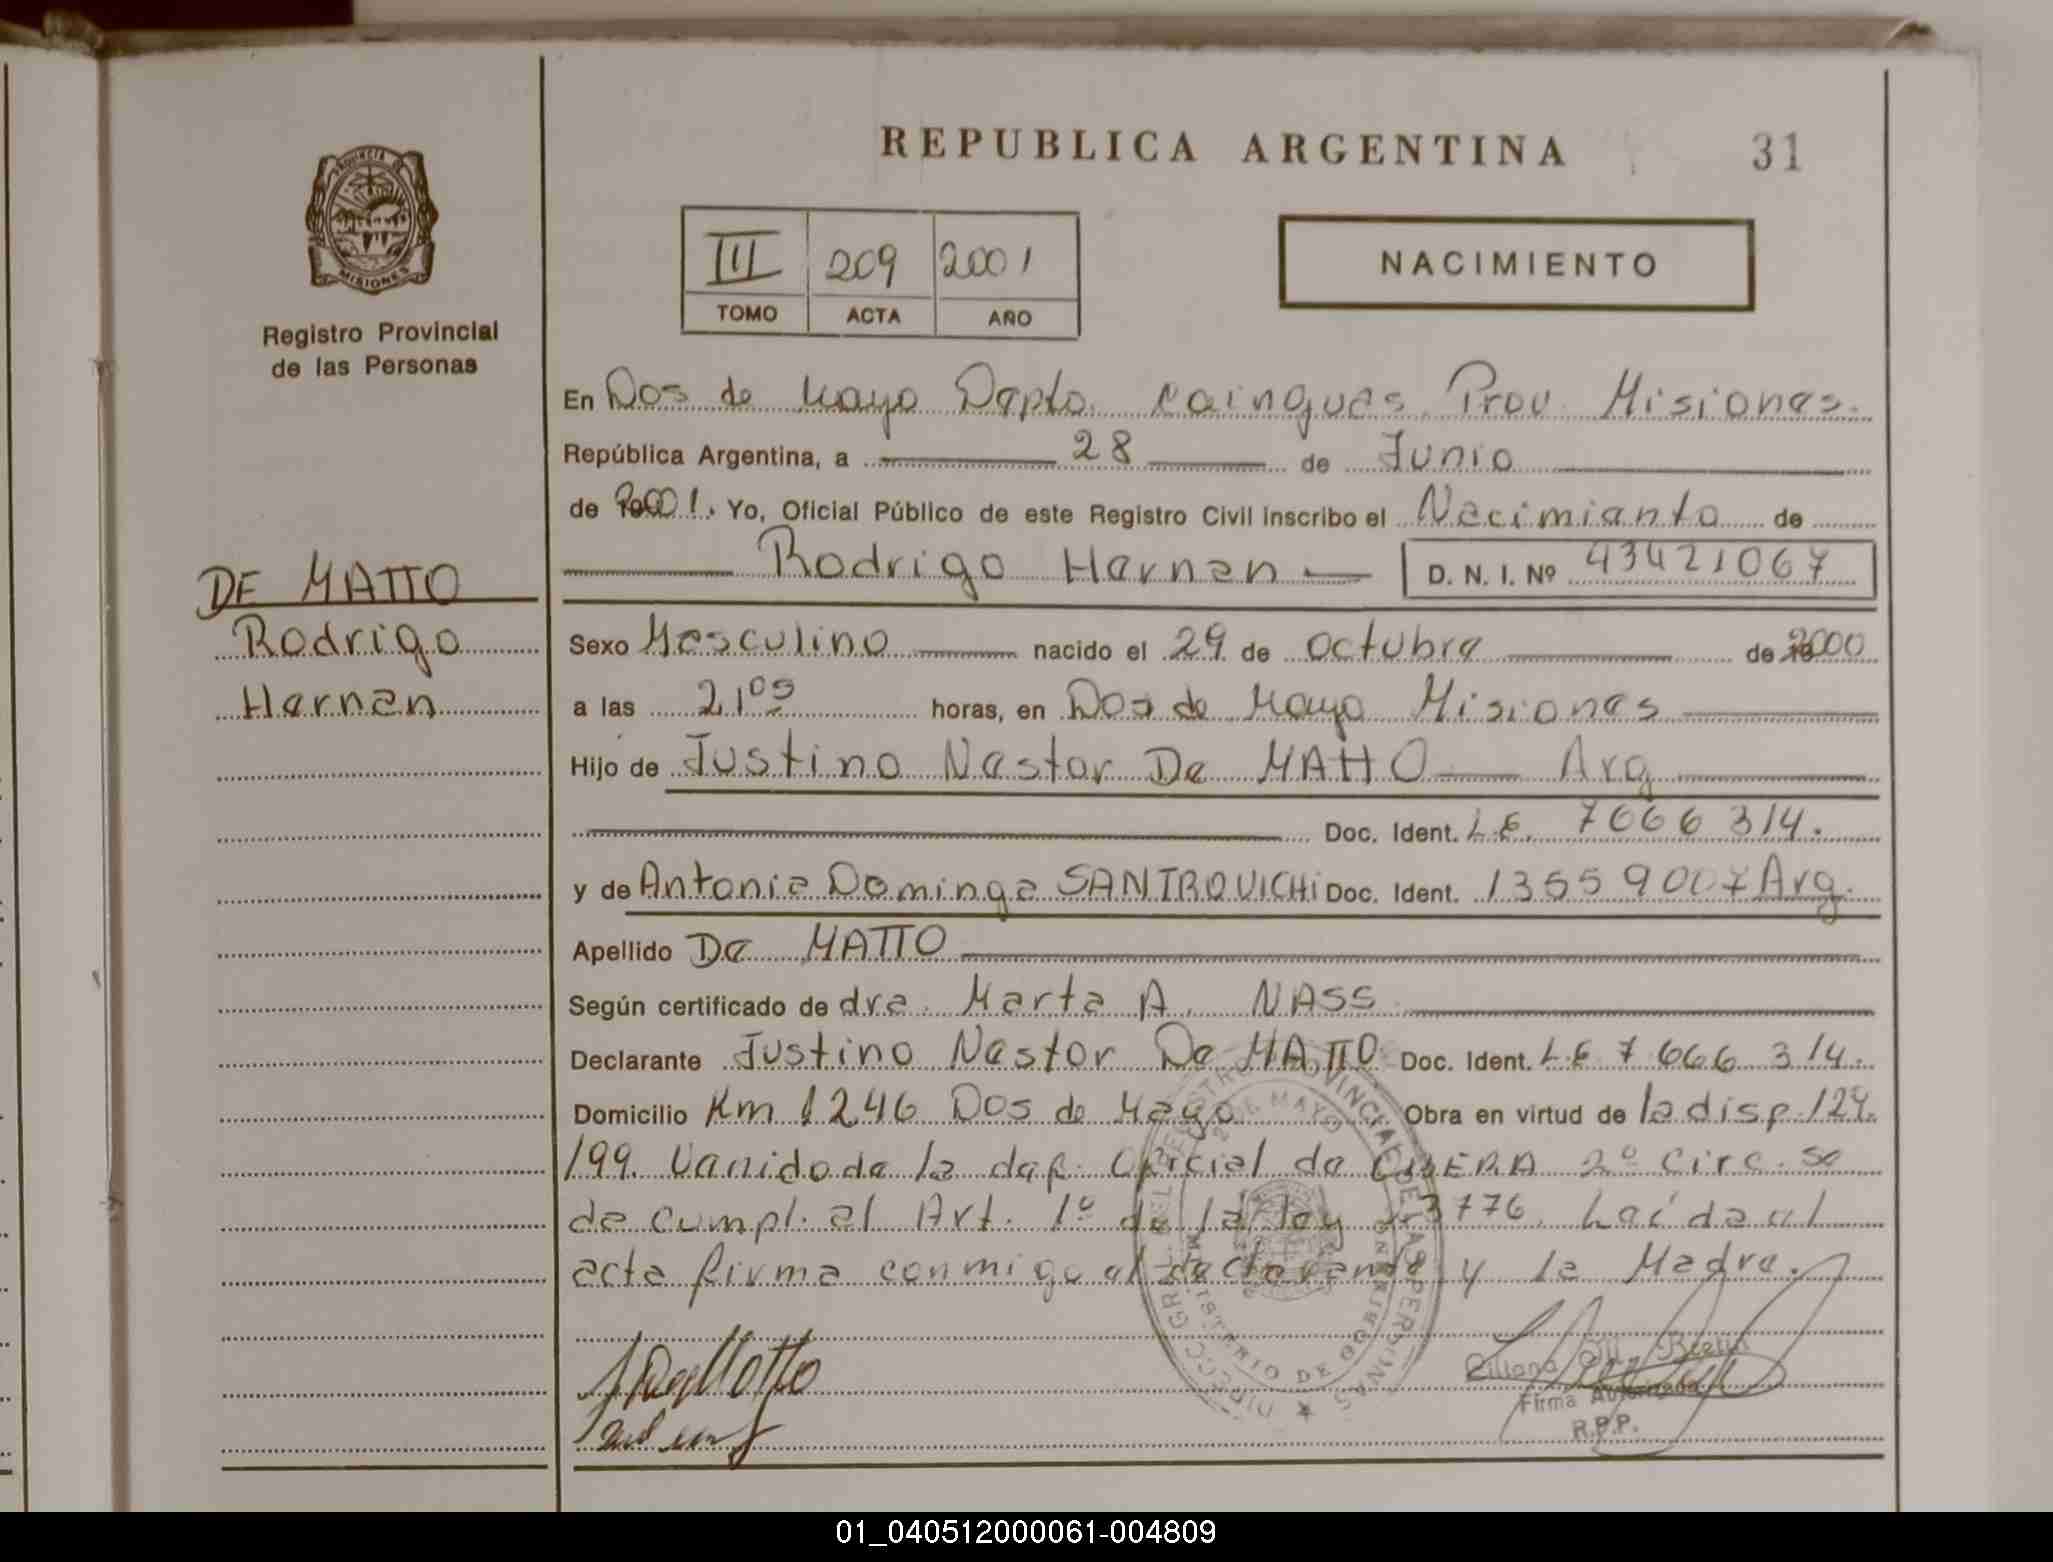 REPUBLICA ARGENTINA
31
PROVINCIA D
MISIONES
Registro Provincial
de las Personas
III 209 2001
TOMO ACTA AÑO
NACIMIENTO
En Dos de Mayo Depto. Cainguas Prov. Misiones.
República Argentina, a 28 de Junio
de 2001. Yo, Oficial Público de este Registro Civil inscribo el Nacimiento de
Rodrigo Hernan D. N. I. Nº 43421067
DE MATTO
Rodrigo
Hernan
Sexo Masculino nacido el 29 de Octubre de 2000
a las 21 05 horas, en Dos de Mayo Misiones
Hijo de Justino Nestor De MATTO Arg
Doc. Ident. L.E. 7666314.
y de Antonia Dominga Doc. Ident. 13559007 Arg.
Apellido De MATTO
Según certificado de dra. Marta A. NASS
Declarante Justino Nestor De MATTO Doc. Ident. L.E 7666314.
Domicilio Km 1246 Dos de Mayo Obra en virtud de la disp. 129.
199. Venido de la dep. Oficial de 2º Circ. se
de cumpl. al Art. 1º de la ley 23776. Leída el
acta firma conmigo el declarante y la Madre.
DIRECC. GRAL. DEL REGISTRO PROVINCIAL DE LAS PERSONAS
2 DE MAYO
MINISTERIO DE GOBIERNO
Firma Autorizada
R.P.P.
01_040512000061-004809